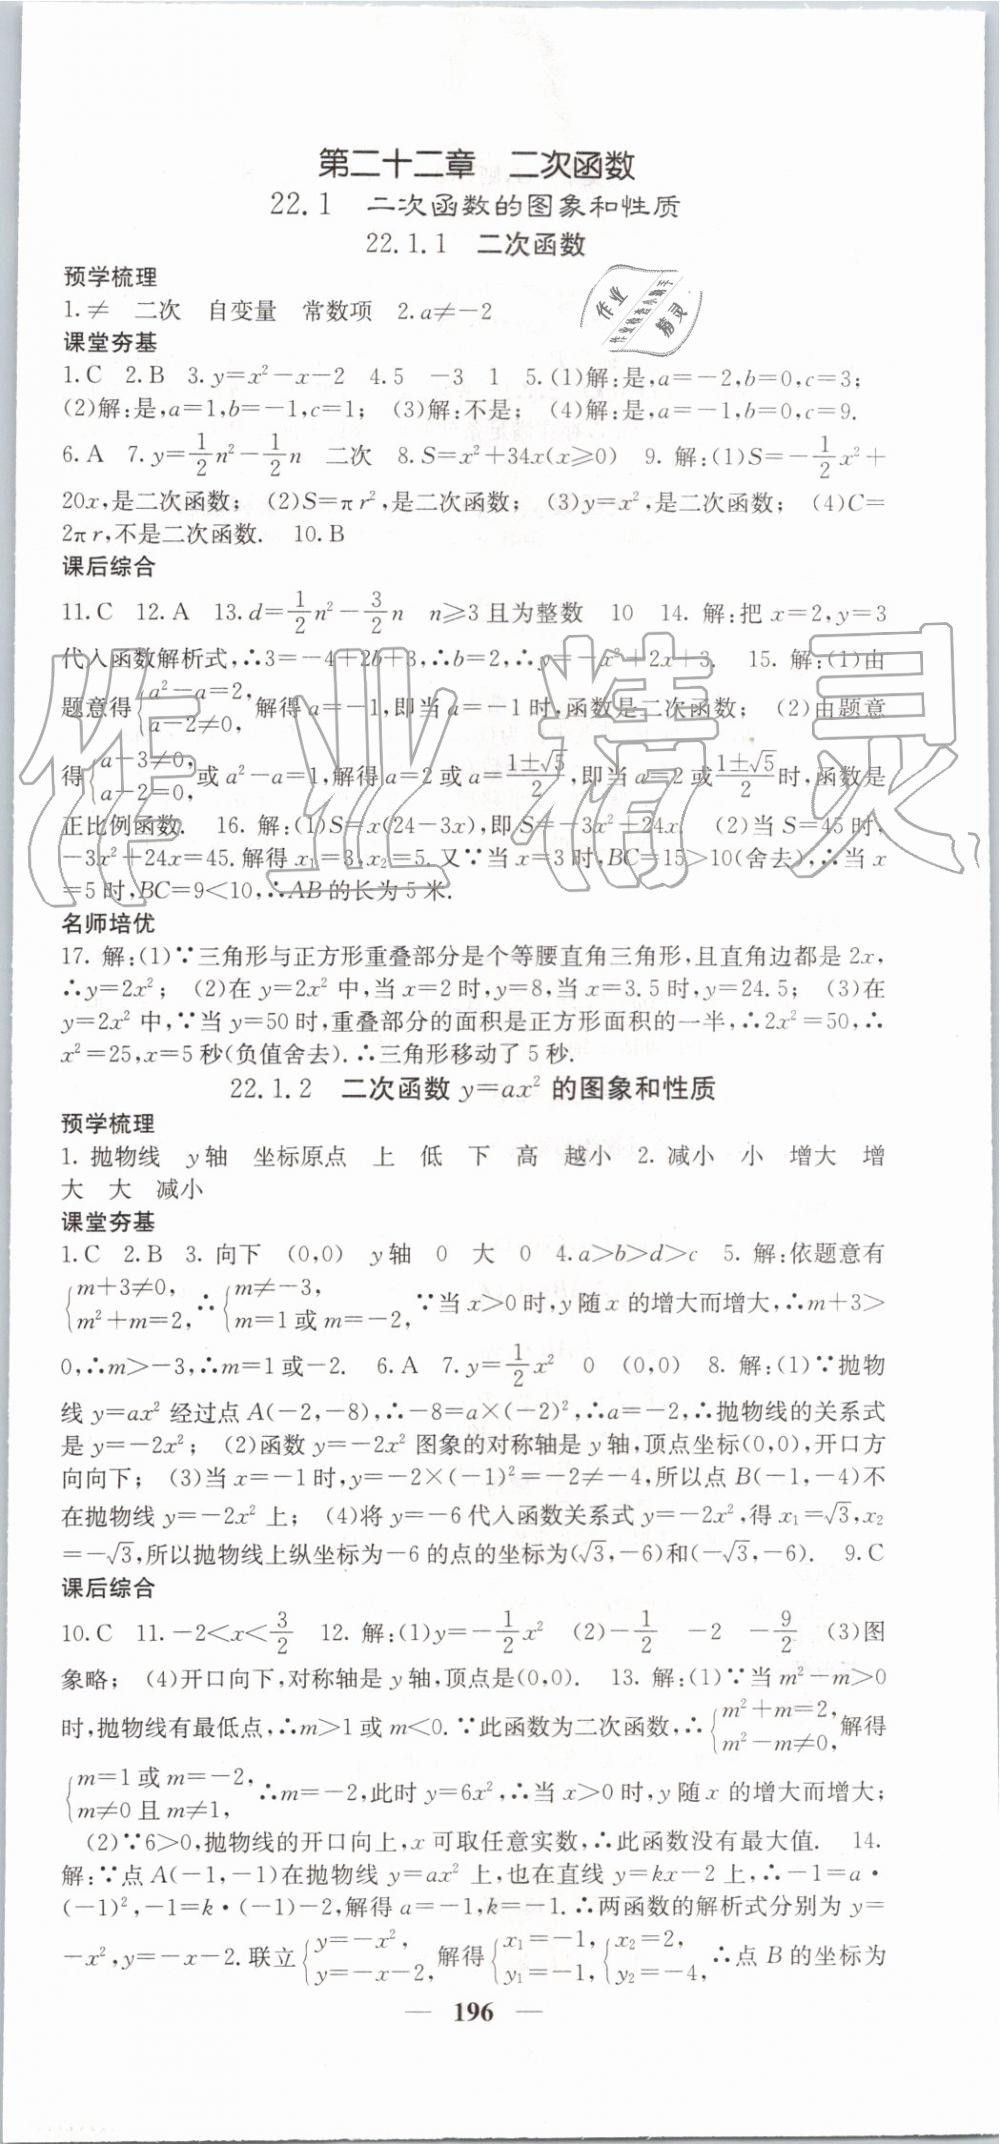 第二十二章　二次函数
22.1　二次函数的图象和性质
22.1.1　二次函数
预学梳理
1.≠　二次　自变量　常数项　2.a≠-2
课堂夯基
1.C　2.B　3.y=x²-x-2　4.5　-3　1　5.(1)解:是,a=-2,b=0,c=3;
(2)解:是,a=1,b=-1,c=1;　(3)解:不是;　(4)解:是,a=-1,b=0,c=9.
6.A　7.y=1/2 n²-1/2 n　二次　8.S=x²+34x(x≥0)　9.解:(1)S=-1/2 x²+
20x,是二次函数;　(2)S=πr²,是二次函数;　(3)y=x²,是二次函数;　(4)C=
2πr,不是二次函数.　10.B
课后综合
11.C　12.A　13.d=1/2 n²-3/2 n　n≥3且为整数　10　14.解:把x=2,y=3
代入函数解析式,∴3=-4+2b+3,∴b=2,∴y=-x²+2x+3.　15.解:(1)由
题意得{a²-a=2, a-2≠0,解得a=-1,即当a=-1时,函数是二次函数;　(2)由题意
得{a-3≠0, a-2=0,或a²-a=1,解得a=2或a=(1±√5)/2,即当a=2或(1±√5)/2时,函数是
正比例函数.　16.解:(1)S=x(24-3x),即S=-3x²+24x.　(2)当S=45时,
-3x²+24x=45.解得x₁=3,x₂=5.又∵当x=3时,BC=15>10(舍去),∴当x
=5时,BC=9<10,∴AB的长为5米.
名师培优
17.解:(1)∵三角形与正方形重叠部分是个等腰直角三角形,且直角边都是2x,
∴y=2x²;　(2)在y=2x²中,当x=2时,y=8,当x=3.5时,y=24.5;　(3)在
y=2x²中,∵当y=50时,重叠部分的面积是正方形面积的一半,∴2x²=50,∴
x²=25,x=5秒(负值舍去).∴三角形移动了5秒.
22.1.2　二次函数y=ax²的图象和性质
预学梳理
1.抛物线　y轴　坐标原点　上　低　下　高　越小　2.减小　小　增大　增
大　大　减小
课堂夯基
1.C　2.B　3.向下　(0,0)　y轴　0　大　0　4.a>b>d>c　5.解:依题意有
{m+3≠0, m²+m=2,∴{m≠-3, m=1或m=-2,∵当x>0时,y随x的增大而增大,∴m+3>
0,∴m>-3,∴m=1或-2.　6.A　7.y=1/2 x²　0　(0,0)　8.解:(1)∵抛物
线y=ax²经过点A(-2,-8),∴-8=a×(-2)²,∴a=-2,∴抛物线的关系式
是y=-2x²;　(2)函数y=-2x²图象的对称轴是y轴,顶点坐标(0,0),开口方
向向下;　(3)当x=-1时,y=-2×(-1)²=-2≠-4,所以点B(-1,-4)不
在抛物线y=-2x²上;　(4)将y=-6代入函数关系式y=-2x²,得x₁=√3,x₂
=-√3,所以抛物线上纵坐标为-6的点的坐标为(√3,-6)和(-√3,-6).　9.C
课后综合
10.C　11.-2<x<3/2　12.解:(1)y=-1/2 x²　(2)-1/2　-2　-9/2　(3)图
象略;　(4)开口向下,对称轴是y轴,顶点是(0,0).　13.解:(1)∵当m²-m>0
时,抛物线有最低点,∴m>1或m<0.∵此函数为二次函数,∴{m²+m=2, m²-m≠0,解得
{m=1或m=-2, m≠0且m≠1,∴m=-2,此时y=6x²,∴当x>0时,y随x的增大而增大;
(2)∵6>0,抛物线的开口向上,x可取任意实数,∴此函数没有最大值.　14.
解:∵点A(-1,-1)在抛物线y=ax²上,也在直线y=kx-2上,∴-1=a·
(-1)²,-1=k·(-1)-2,解得a=-1,k=-1.∴两函数的解析式分别为y=
-x²,y=-x-2.联立{y=-x², y=-x-2,解得{x₁=-1, y₁=-1,{x₂=2, y₂=-4,∴点B的坐标为
— 196 —
作业
作业检查小帮手
精灵
作业精灵